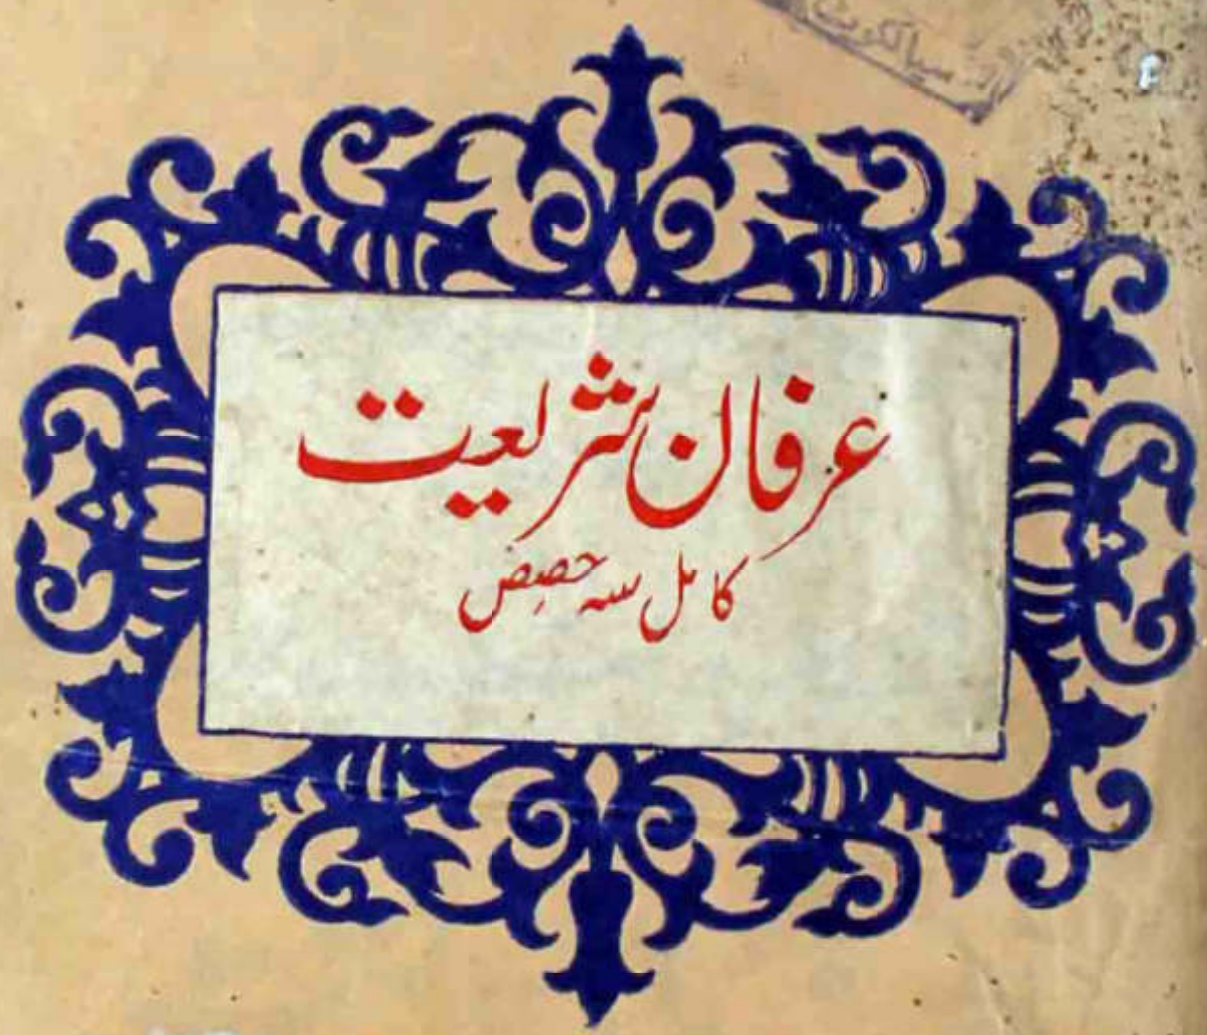 سیالکوٹ
عرفان شریعت
کامل سہ حصص